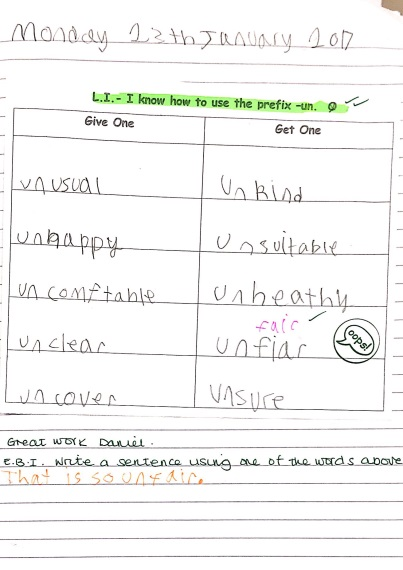 Monday 23th January 2017
L.I.- I know how to use the prefix -un.
Give One
Get One
unusual
Unkind
unhappy
Unsuitable
uncomftable
Unheathy
fair
unclear
unfiar
oops!
uncover
Unsure
Great work Daniel.
E.B.I. Write a sentence using one of the words above
That is so unfair.